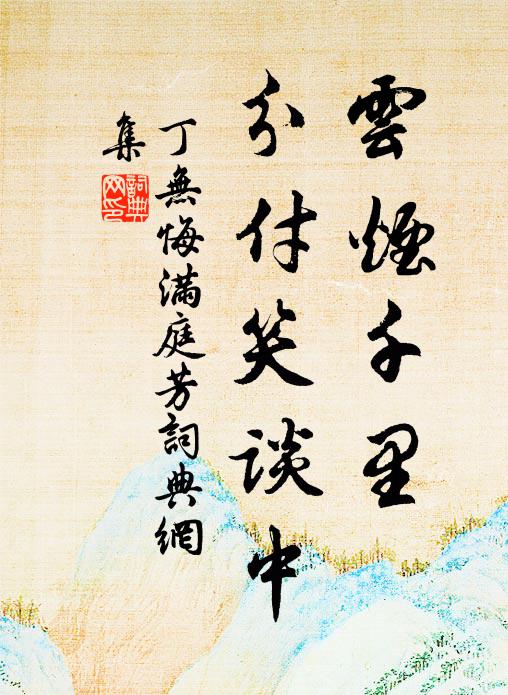 雲煙千里
分付笑談中
丁無悔滿庭芳詞典網
集
詞典網印